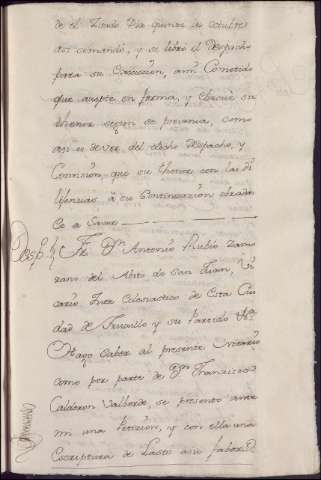 de el dicho Dia quinse de octubre
asi comando, y se libro el Despacho
para su execucion, a mi Cometido
que acepte en forma, y
thenor segun se prevenia, como
asi es de ver, del dicho Despacho, y
Comision, que su thenor con las di
lixencias à su Continuazion obradas
Es a Saver
Desp.º Fr. Dⁿ Antonio Rubio
del Abito de San Juan, Vi
cario Juez Eclesiastico de Esta Ciu
dad de Truxillo y su Partido &ª
Hago saber al presente Notario
como por parte de Dⁿ Francisco
Calderon Valverde, se presento ante
mi una Peticion, y con ella una
Escriptura de Lasto a su fabor